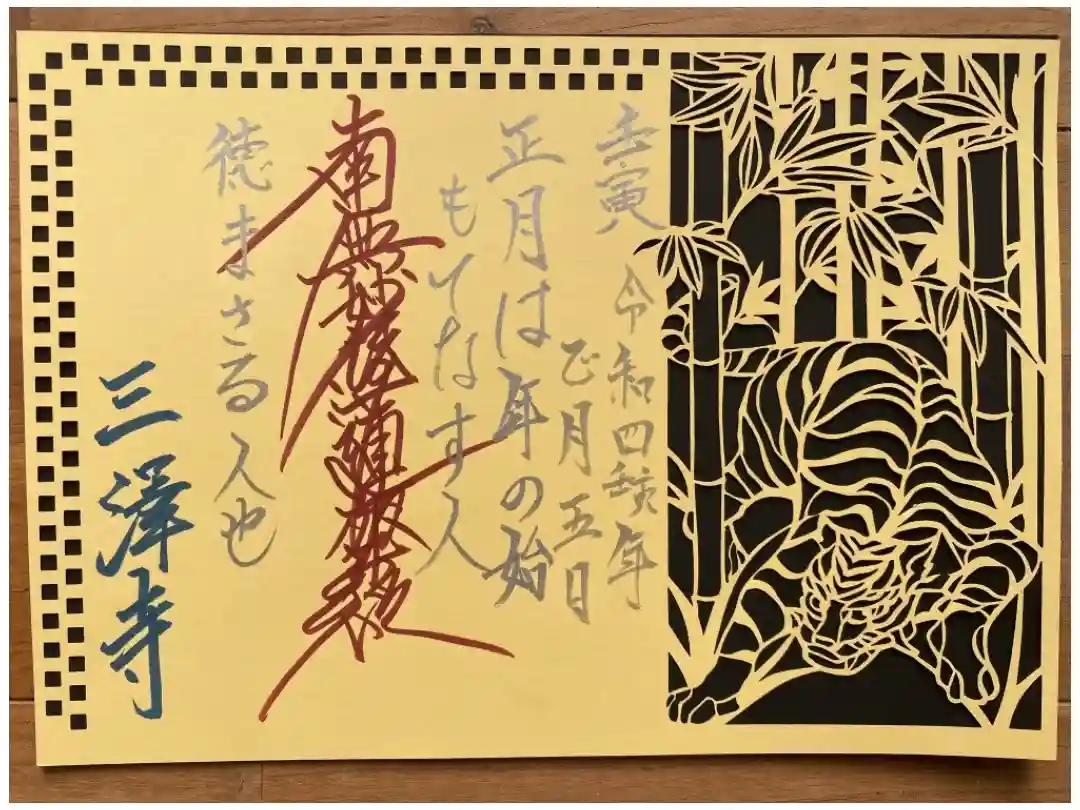 壬寅 令和四癸年
正月五日
正月は年の始
もてなす人
南無妙法蓮華経
徳まさる人也
三澤寺